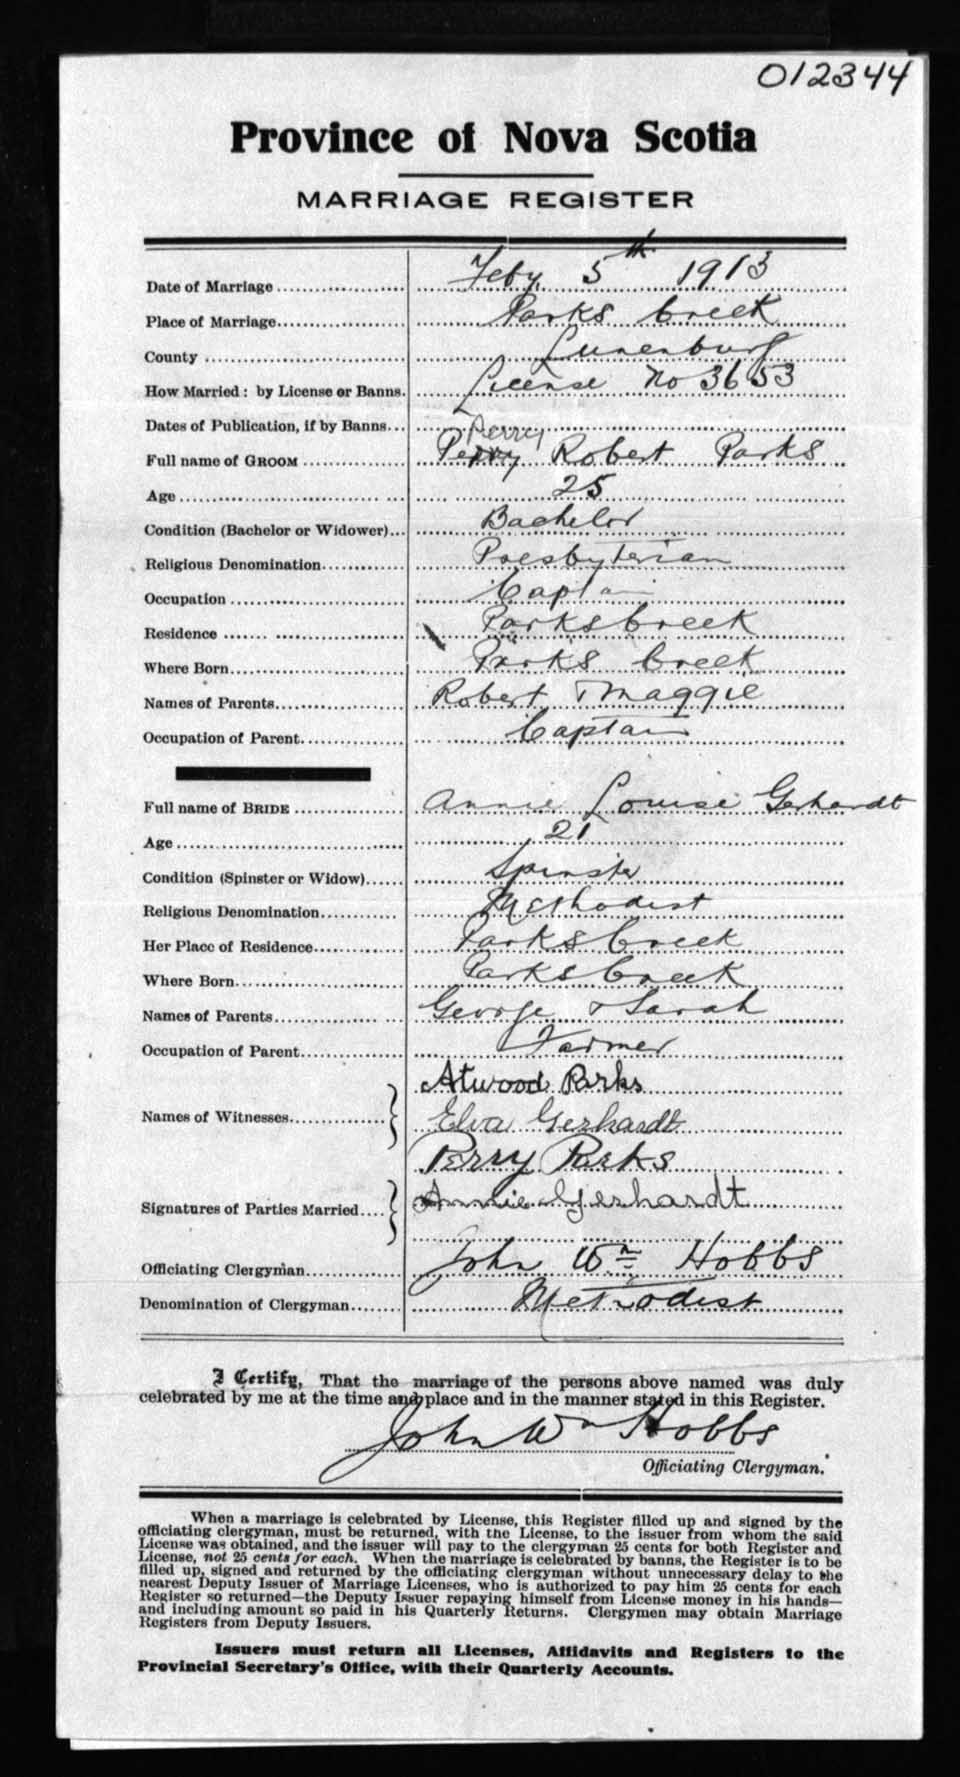 012344
Province of Nova Scotia
MARRIAGE REGISTER
Date of Marriage Feby 5th 1913
Place of Marriage Parks Creek
County Lunenburg
How Married: by License or Banns. License No 3653
Dates of Publication, if by Banns
Perry
Full name of GROOM Perry Robert Parks
Age 25
Condition (Bachelor or Widower) Bachelor
Religious Denomination Presbyterian
Occupation Captain
Residence Parks Creek
Where Born Parks Creek
Names of Parents Robert & Maggie
Occupation of Parent Captain
Full name of BRIDE Annie Louise Gerhardt
Age 21
Condition (Spinster or Widow) Spinster
Religious Denomination Methodist
Her Place of Residence Parks Creek
Where Born Parks Creek
Names of Parents George & Sarah
Occupation of Parent Farmer
Atwood Parks
Names of Witnesses Elva Gerhardt
Perry Parks
Signatures of Parties Married Annie Gerhardt
Officiating Clergyman John Wm Hobbs
Denomination of Clergyman Methodist
I Certify, That the marriage of the persons above named was duly
celebrated by me at the time and place and in the manner stated in this Register.
John Wm Hobbs
Officiating Clergyman.
When a marriage is celebrated by License, this Register filled up and signed by the
officiating clergyman, must be returned, with the License, to the issuer from whom the said
License was obtained, and the issuer will pay to the clergyman 25 cents for both Register and
License, not 25 cents for each. When the marriage is celebrated by banns, the Register is to be
filled up, signed and returned by the officiating clergyman without unnecessary delay to the
nearest Deputy Issuer of Marriage Licenses, who is authorized to pay him 25 cents for each
Register so returned—the Deputy Issuer repaying himself from License money in his hands—
and including amount so paid in his Quarterly Returns. Clergymen may obtain Marriage
Registers from Deputy Issuers.
Issuers must return all Licenses, Affidavits and Registers to the
Provincial Secretary's Office, with their Quarterly Accounts.